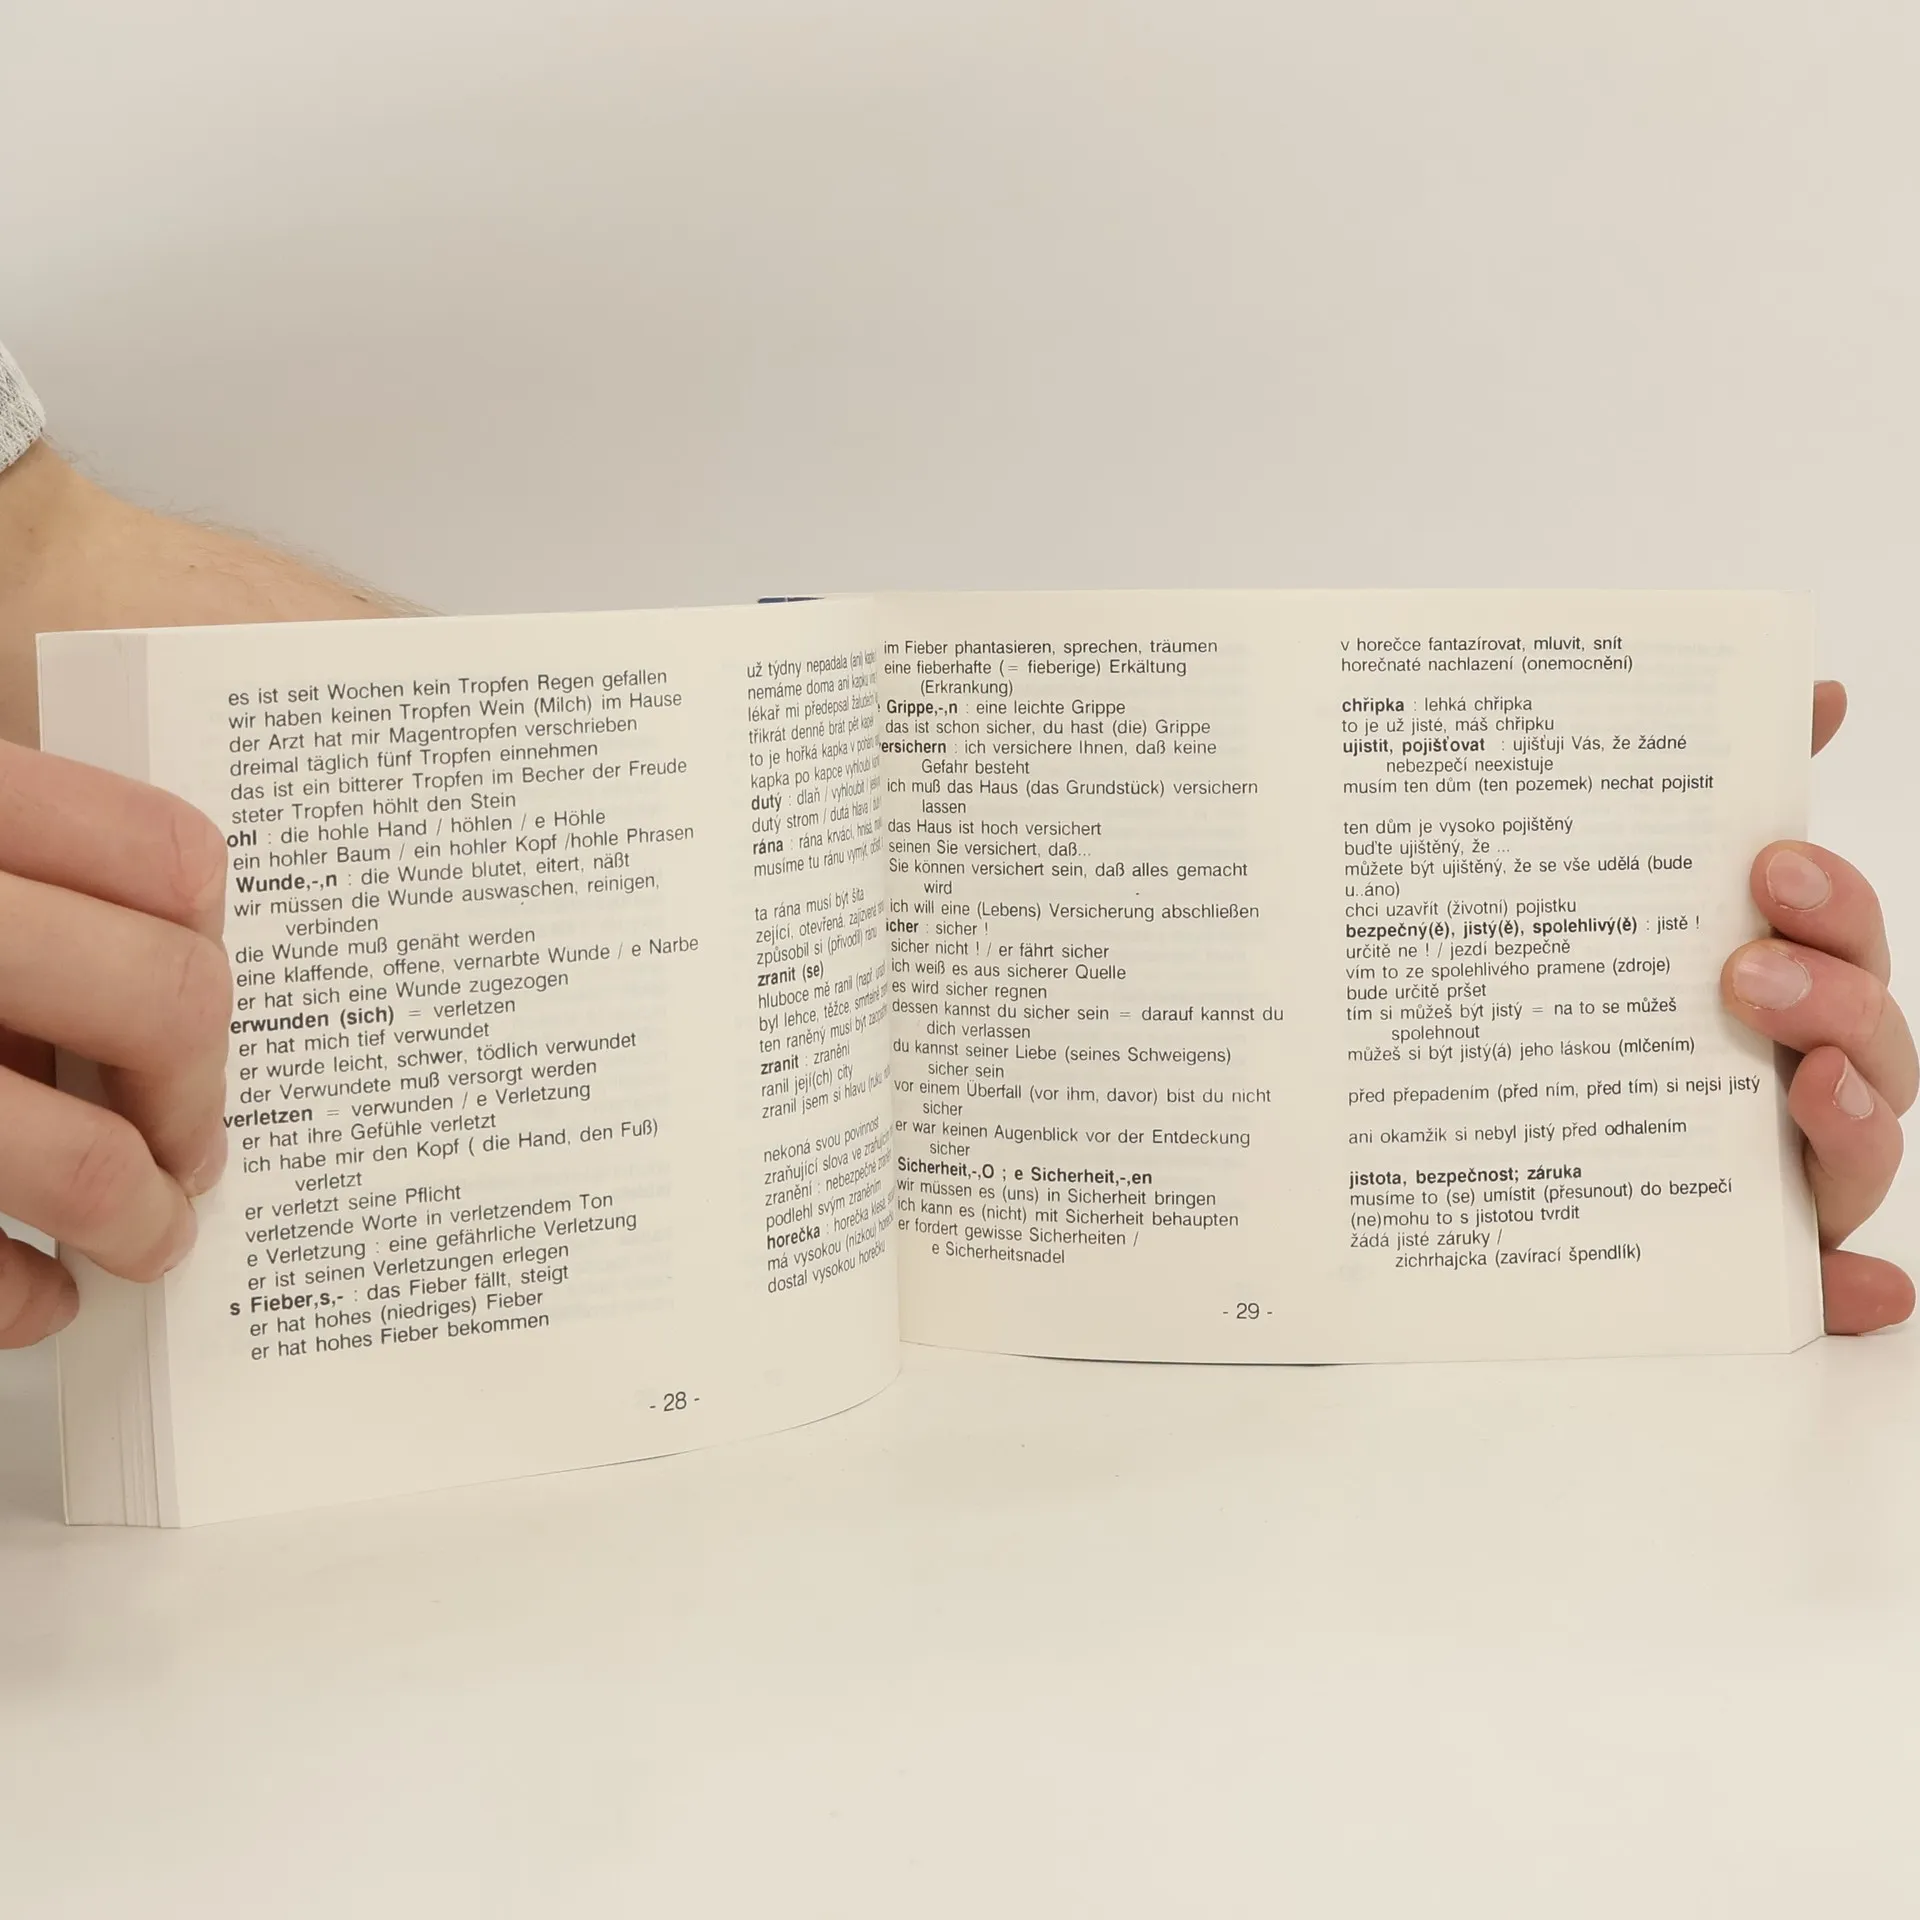 es ist seit Wochen kein Tropfen Regen gefallen
wir haben keinen Tropfen Wein (Milch) im Hause
der Arzt hat mir Magentropfen verschrieben
dreimal täglich fünf Tropfen einnehmen
das ist ein bitterer Tropfen im Becher der Freude
steter Tropfen höhlt den Stein
ohl : die hohle Hand / höhlen / e Höhle
ein hohler Baum / ein hohler Kopf /hohle Phrasen
Wunde,-,n : die Wunde blutet, eitert, näßt
wir müssen die Wunde auswaschen, reinigen,
verbinden
die Wunde muß genäht werden
eine klaffende, offene, vernarbte Wunde / e Narbe
er hat sich eine Wunde zugezogen
erwunden (sich) = verletzen
er hat mich tief verwundet
er wurde leicht, schwer, tödlich verwundet
der Verwundete muß versorgt werden
verletzen = verwunden / e Verletzung
er hat ihre Gefühle verletzt
ich habe mir den Kopf ( die Hand, den Fuß)
verletzt
er verletzt seine Pflicht
verletzende Worte in verletzendem Ton
e Verletzung : eine gefährliche Verletzung
er ist seinen Verletzungen erlegen
s Fieber,s,- : das Fieber fällt, steigt
er hat hohes (niedriges) Fieber
er hat hohes Fieber bekommen
už týdny nepadala (ani)
nemáme doma ani kapku
lékař mi předepsal žaludeční
třikrát denně brát pět kapek
to je hořká kapka v
kapka po kapce vyhloubí
dutý : dlaň / vyhloubit /
dutý strom / dutá hlava /
rána : rána krvácí, hnisá,
musíme tu ránu vymýt,
ta rána musí být šita
zející, otevřená, zajizvená
způsobil si (přivodil) ránu
zranit (se)
hluboce mě ranil (např.
byl lehce, těžce, smrtelně
ten raněný musí být
zranit : zranění
ranil její(ch) city
zranil jsem si hlavu (ruku,
nekoná svou povinnost
zraňující slova ve
zranění : nebezpečné
podlehl svým zraněním
horečka : horečka klesá,
má vysokou (nízkou)
dostal vysokou horečku
- 28 -
im Fieber phantasieren, sprechen, träumen
eine fieberhafte ( = fieberige) Erkältung
(Erkrankung)
Grippe,-,n : eine leichte Grippe
das ist schon sicher, du hast (die) Grippe
ersichern : ich versichere Ihnen, daß keine
Gefahr besteht
ich muß das Haus (das Grundstück) versichern
lassen
das Haus ist hoch versichert
seinen Sie versichert, daß...
Sie können versichert sein, daß alles gemacht
wird
ich will eine (Lebens) Versicherung abschließen
icher : sicher !
sicher nicht ! / er fährt sicher
ich weiß es aus sicherer Quelle
es wird sicher regnen
dessen kannst du sicher sein = darauf kannst du
dich verlassen
du kannst seiner Liebe (seines Schweigens)
sicher sein
vor einem Überfall (vor ihm, davor) bist du nicht
sicher
er war keinen Augenblick vor der Entdeckung
sicher
Sicherheit,-,O ; e Sicherheit,-,en
wir müssen es (uns) in Sicherheit bringen
ich kann es (nicht) mit Sicherheit behaupten
er fordert gewisse Sicherheiten /
e Sicherheitsnadel
v horečce fantazírovat, mluvit, snít
horečnaté nachlazení (onemocnění)
chřipka : lehká chřipka
to je už jisté, máš chřipku
ujistit, pojišťovat : ujišťuji Vás, že žádné
nebezpečí neexistuje
musím ten dům (ten pozemek) nechat pojistit
ten dům je vysoko pojištěný
buďte ujištěný, že ...
můžete být ujištěný, že se vše udělá (bude
u..áno)
chci uzavřít (životní) pojistku
bezpečný(ě), jistý(ě), spolehlivý(ě) : jistě !
určitě ne ! / jezdí bezpečně
vím to ze spolehlivého pramene (zdroje)
bude určitě pršet
tím si můžeš být jistý = na to se můžeš
spolehnout
můžeš si být jistý(á) jeho láskou (mlčením)
před přepadením (před ním, před tím) si nejsi jistý
ani okamžik si nebyl jistý před odhalením
jistota, bezpečnost; záruka
musíme to (se) umístit (přesunout) do bezpečí
(ne)mohu to s jistotou tvrdit
žádá jisté záruky /
zichrhajcka (zavírací špendlík)
- 29 -